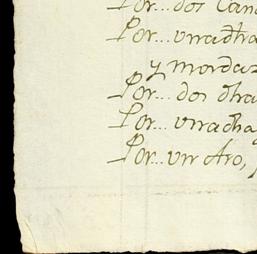 Por... dos Can
Por... vna dha
y mordaz
Por... dos dha
Por... vna dha
Por... vn Aro,